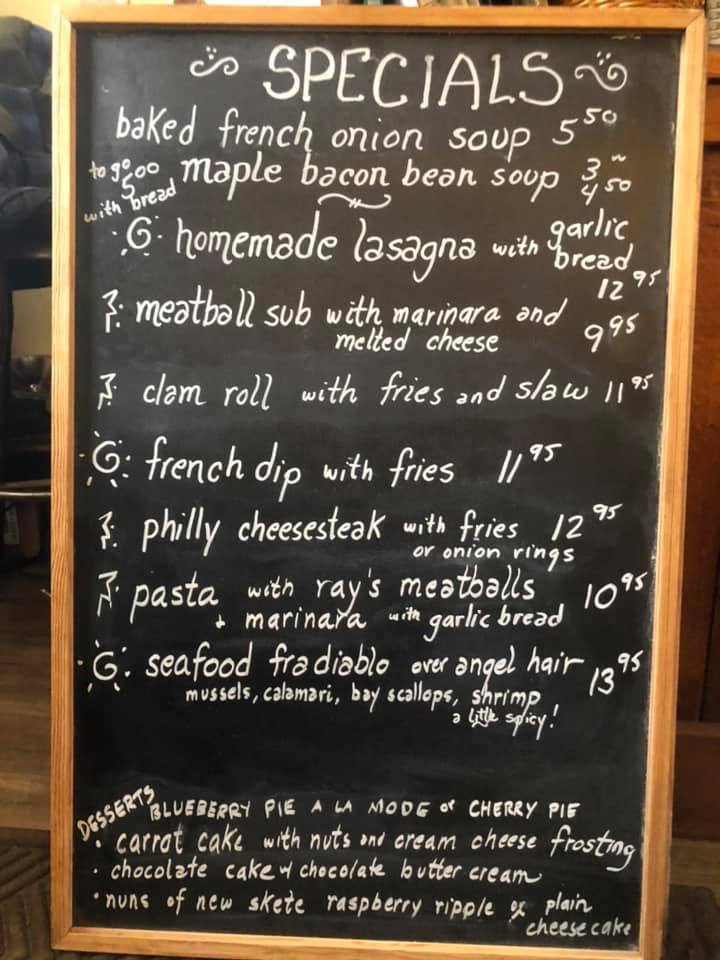 SPECIALS
baked french onion soup 5 50
to go 5.00 with bread
maple bacon bean soup 3 4 50
G homemade lasagna with garlic bread
12 95
meatball sub with marinara and
melted cheese 9 95
clam roll with fries and slaw 11 95
G french dip with fries 11 95
philly cheesesteak with fries 12 95
or onion rings
pasta with ray's meatballs 10 95
+ marinara with garlic bread
G seafood fra diablo over angel hair 13 95
mussels, calamari, bay scallops, shrimp
a little spicy!
DESSERTS
BLUEBERRY PIE A LA MODE or CHERRY PIE
• carrot cake with nuts and cream cheese frosting
• chocolate cake w chocolate butter cream
• nuns of new skete raspberry ripple or plain
cheese cake